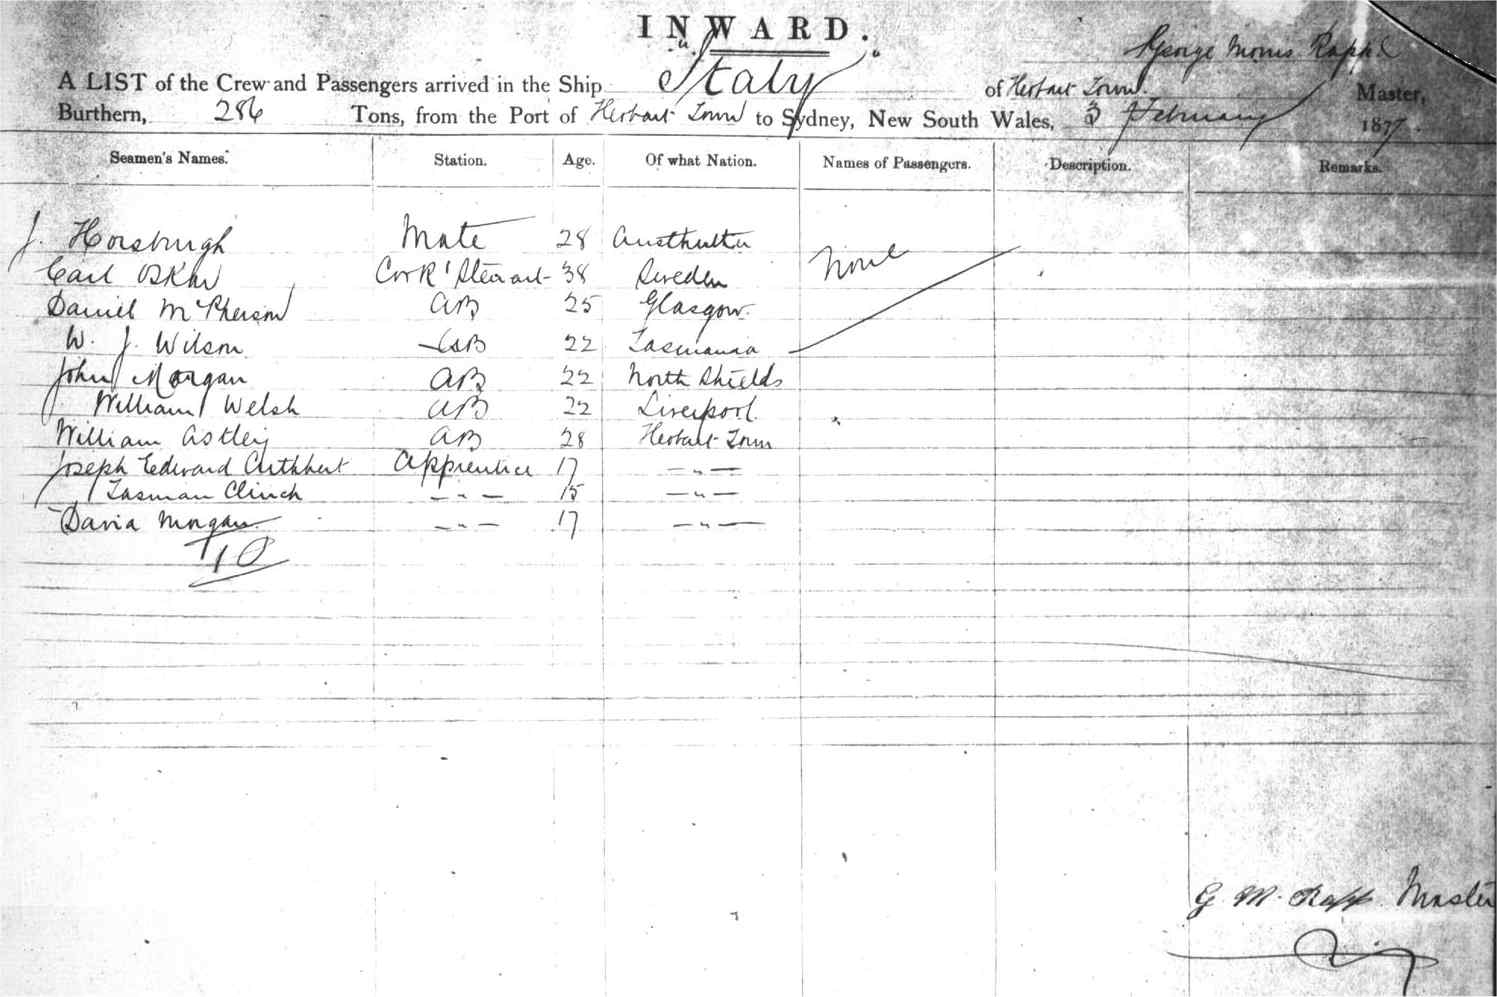 INWARD.
George Morris Rapp
A LIST of the Crew and Passengers arrived in the Ship "Italy" of Hobart Town Master,
Burthern, 286 Tons, from the Port of Hobart Town to Sydney, New South Wales, 3 February 1877.
Seamen's Names. Station. Age. Of what Nation. Names of Passengers. Description. Remarks.
J. Horsburgh Mate 28 None
Carl Oskar Cook & Steward 38 Sweden
Daniel McPherson AB 25 Glasgow.
W. J. Wilson AB 22 Tasmania
John Morgan AB 22 North Shields
William Welsh AB 22 Liverpool
William Astley AB 28 Hobart Town
Joseph Edward Cuthbert Apprentice 17 — " —
Tasman Clinch — " — 15 — " —
David Morgan — " — 17 — " —
10
G. M. Rapp Master